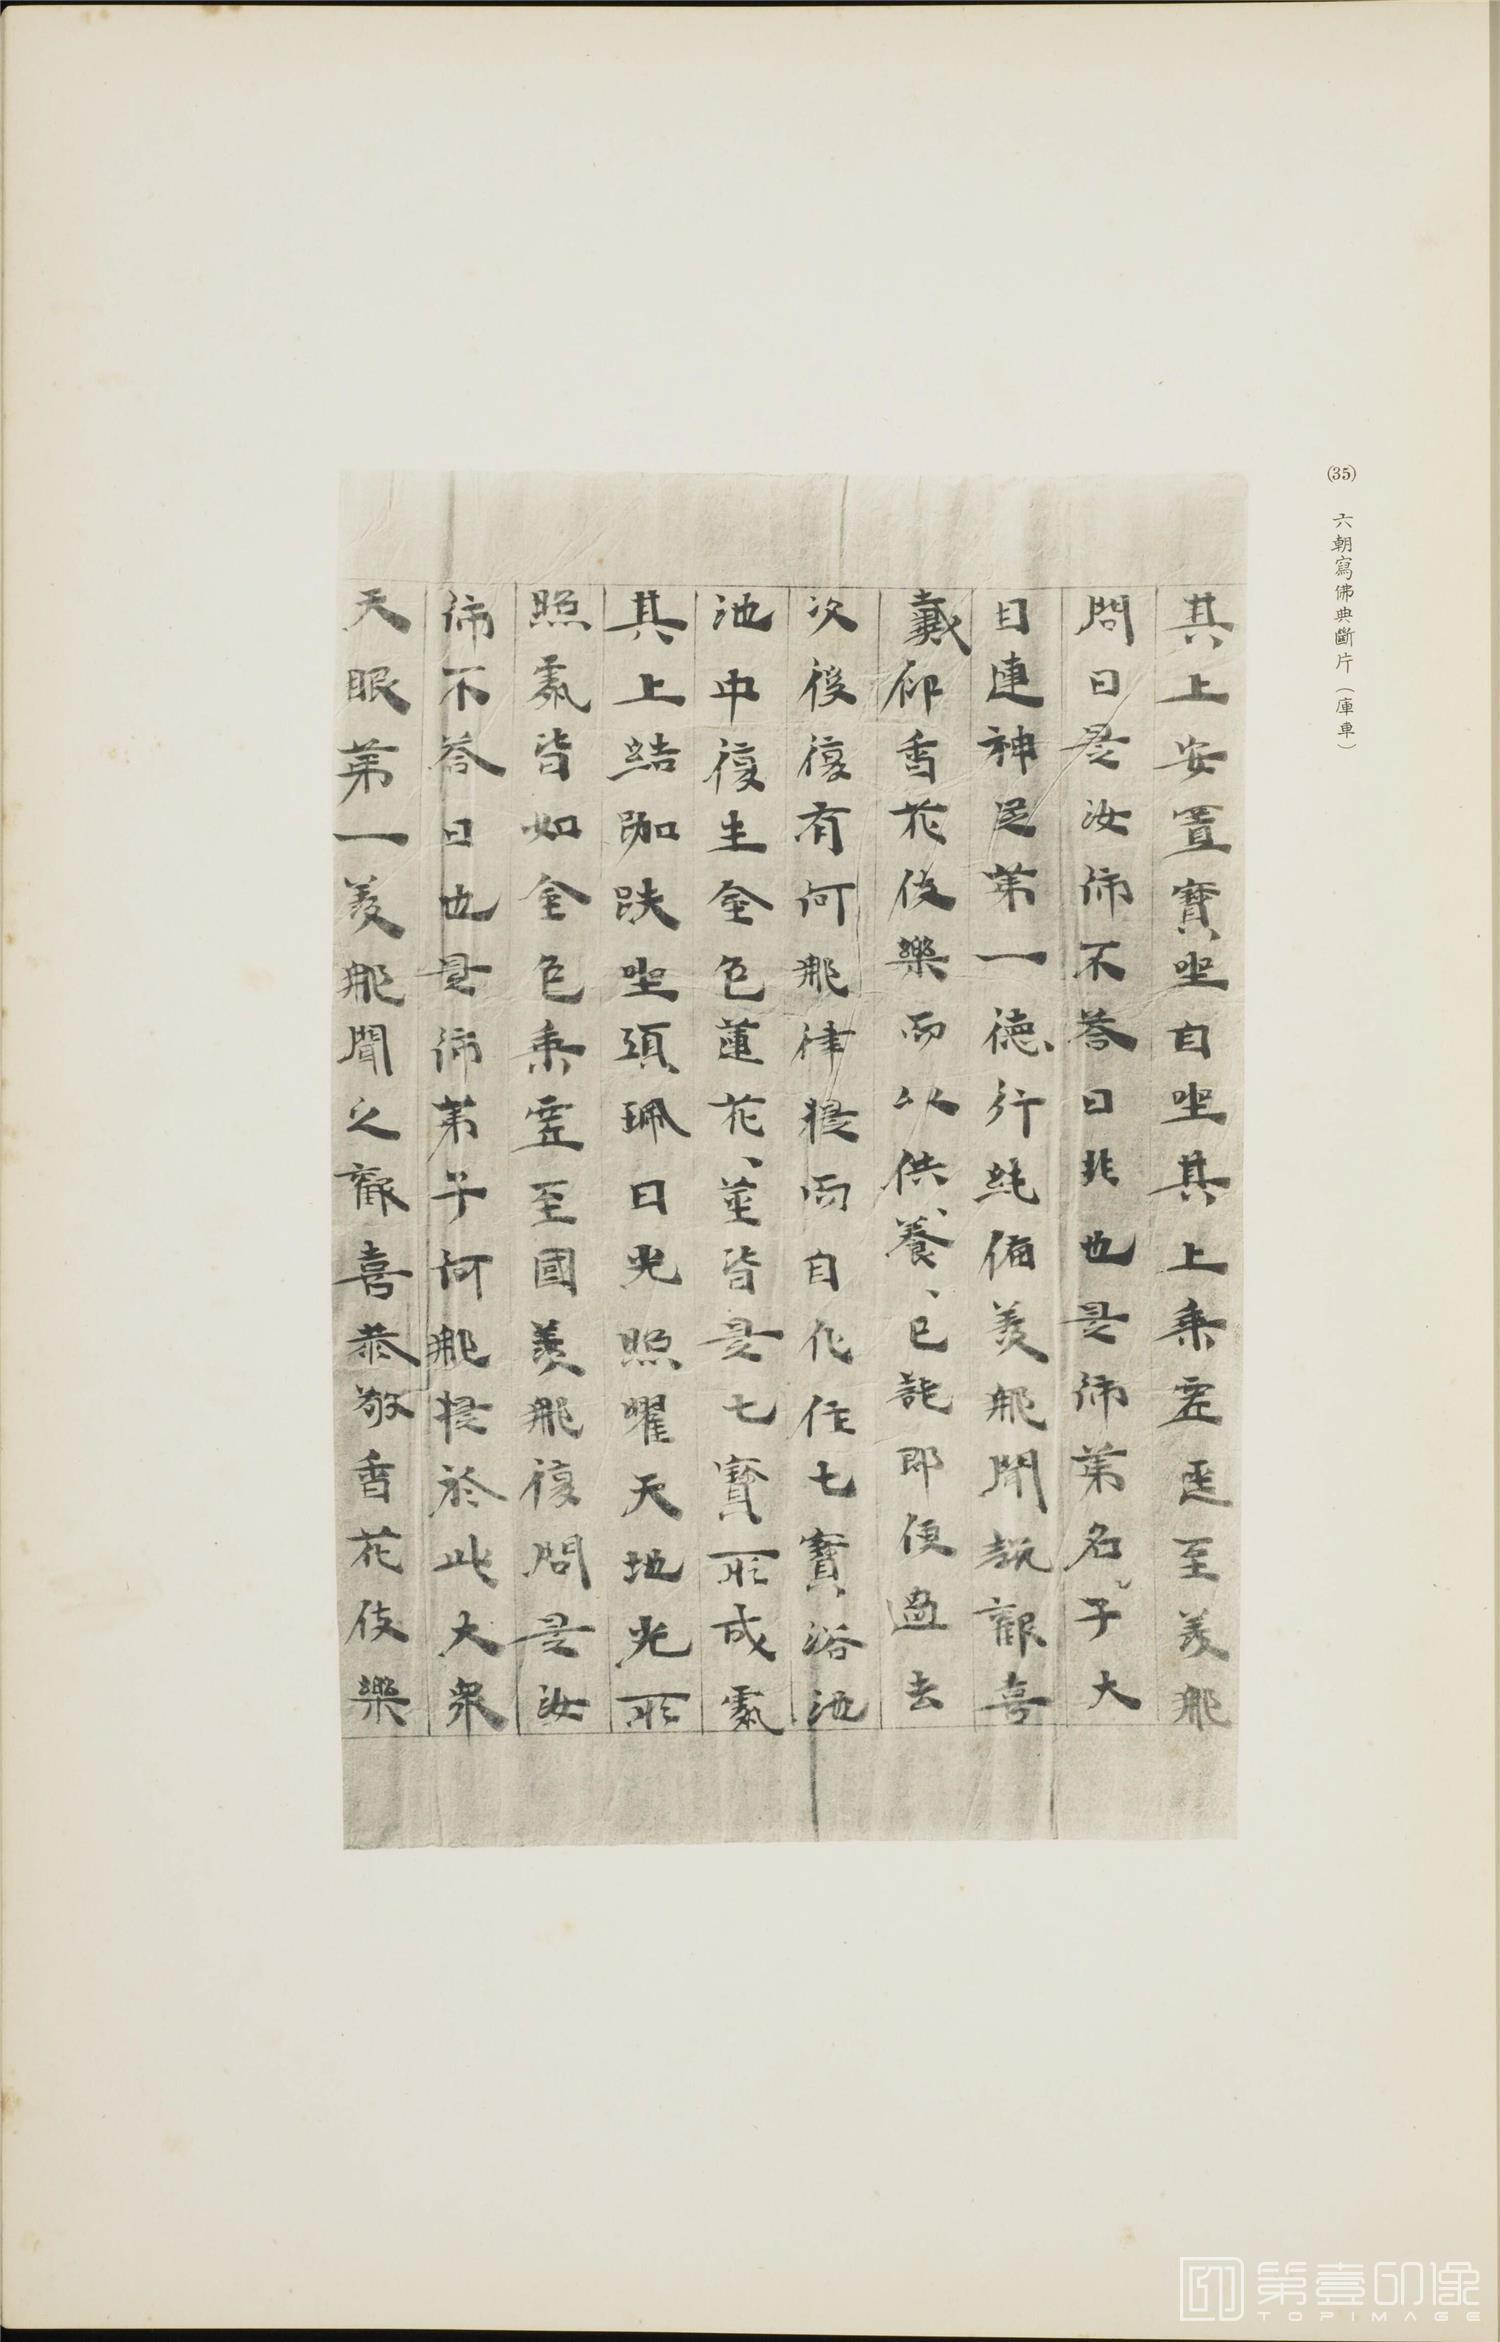 (35) 六朝寫佛典斷片（庫車）
其上安置寶坐自坐其上乘虛逕至羨那
問曰是汝師不答曰非也是師第名子大
目連神足第一德行純備羨那聞說歡喜
戴仰香花伎樂而以供養已訖即便過去
次後復有阿那律提而自化作七寶浴池
池中復生金色蓮花莖皆是七寶所成處
其上結跏趺坐項珮日光照曜天地光所
照處皆如金色乘虛至國羨那復問是汝
師不答曰也是師弟子阿那提於此大眾
天眼第一羨那聞之歡喜恭敬香花伎樂
第壹印像
TOPIMAGE